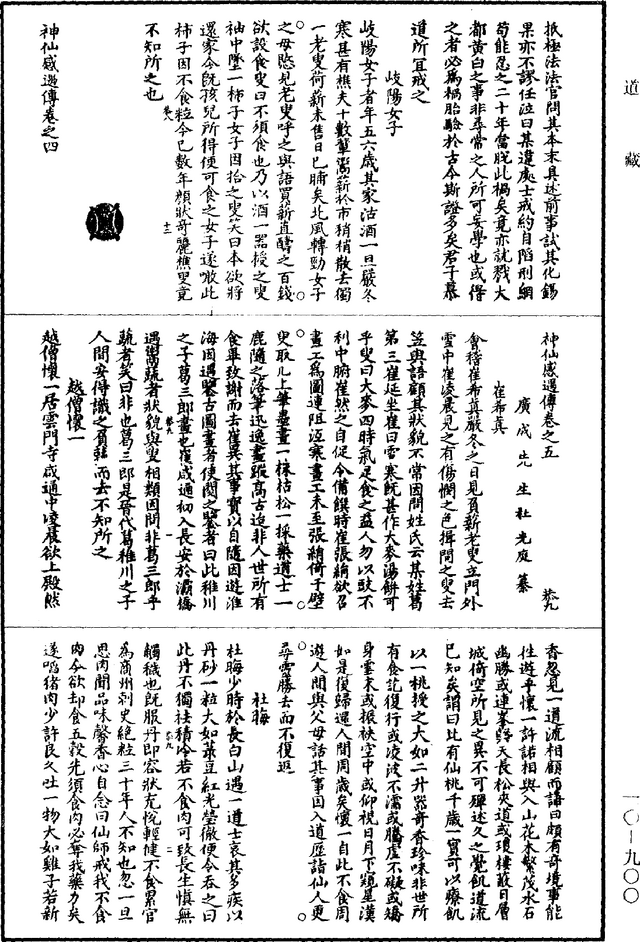 道藏
抵極法法官問其本末具述前事試其化錫
果亦不謬任泣曰某違處士戒約自陷刑網
苟能忍之二十年當脫此禍矣竟亦就戮大
都黃白之事非尋常之人所可妄學也或得
之者必為禍胎驗於古今斯證多矣君子慕
道所宜戒之
岐陽女子
岐陽女子者年五六歲其家沽酒一旦嚴冬
寒甚有樵夫十數輩鬻薪於市稍稍散去獨
一老叟荷薪未售日已晡矣北風轉勁女子
之母愍見老叟呼之與語買薪直酬之百錢
欲設食叟曰不須食也乃以酒一器授之叟
袖中墜一柿子女子因拾之叟笑曰本欲將
還家今旣孩兒所得便可食之女子遂噉此
柿子因不食粒今已數年顏狀奇麗樵叟竟
不知所之也
神仙感遇傳卷之四
神仙感遇傳卷之五 恭九
廣成先生杜光庭纂
崔希真
會稽崔希真嚴冬之日見負薪老叟立門外
雪中崔凌晨見之有傷憫之色揖問之叟去
笠與語顧其狀貌不常因問姓氏云某姓葛
第三崔延坐崔曰雪寒旣甚作大麥湯餅可
乎叟曰大麥四時氣足食之益人勿以豉不
利中腑崔然之自促令備饌時崔張絹欲召
畫工為圖連阻沍寒畫工未至張絹倚于壁
叟取几上筆墨畫一株枯松一採藥道士一
鹿隨之落筆迅逸畫蹤高古迨非人世所有
食畢致謝而去崔異其事寶以自隨因遊淮
海因遇鑒古圖畫者使閱之鑒者曰此稚川
之子葛三郎畫也崔咸通初入長安於灞橋
遇鬻蔬者狀貌與叟相類因問非葛三郎乎
蔬者笑曰非也葛三郎是晉代葛稚川之子
人間安得識之負蔬而去不知所之
越僧懷一
越僧懷一居雲門寺咸通中凌晨欲上殿然
香忽見一道流相顧而語曰頗有奇境事能
往遊乎懷一許諾相與入山花木繁茂水石
幽勝或連峯槩天長松夾道或瓊樓蔽日層
城倚空所見之異不可殫述久之覺飢道流
已知矣謂曰此有仙桃千歲一實可以療飢
以一桃授之大如二升器奇香珍味非世所
有食訖復行或凌波不濡或騰虛不礙或矯
身雲末或振袂空中或仰視日月下窺星漢
如是復歸還人間周歲矣懷一自此不食周
遊人間與父母話其事因入道歷詣仙人更
尋靈勝去而不復返
杜晦
杜晦少時於長白山遇一道士哀其多疾以
丹砂一粒大如菉豆紅光瑩徹便令吞之曰
此丹不獨祛積冷若不食肉可致長生慎無
觸穢也旣服丹即容狀充悅輕健不食累官
為商州刺史絕粒三十年人不知也忽一旦
思肉聞品味馨香心自念曰仙師戒我不食
肉今欲却食五穀先須食肉必奪我藥力矣
遂啗猪肉少許良久吐一物大如雞子若新
一〇—九〇〇